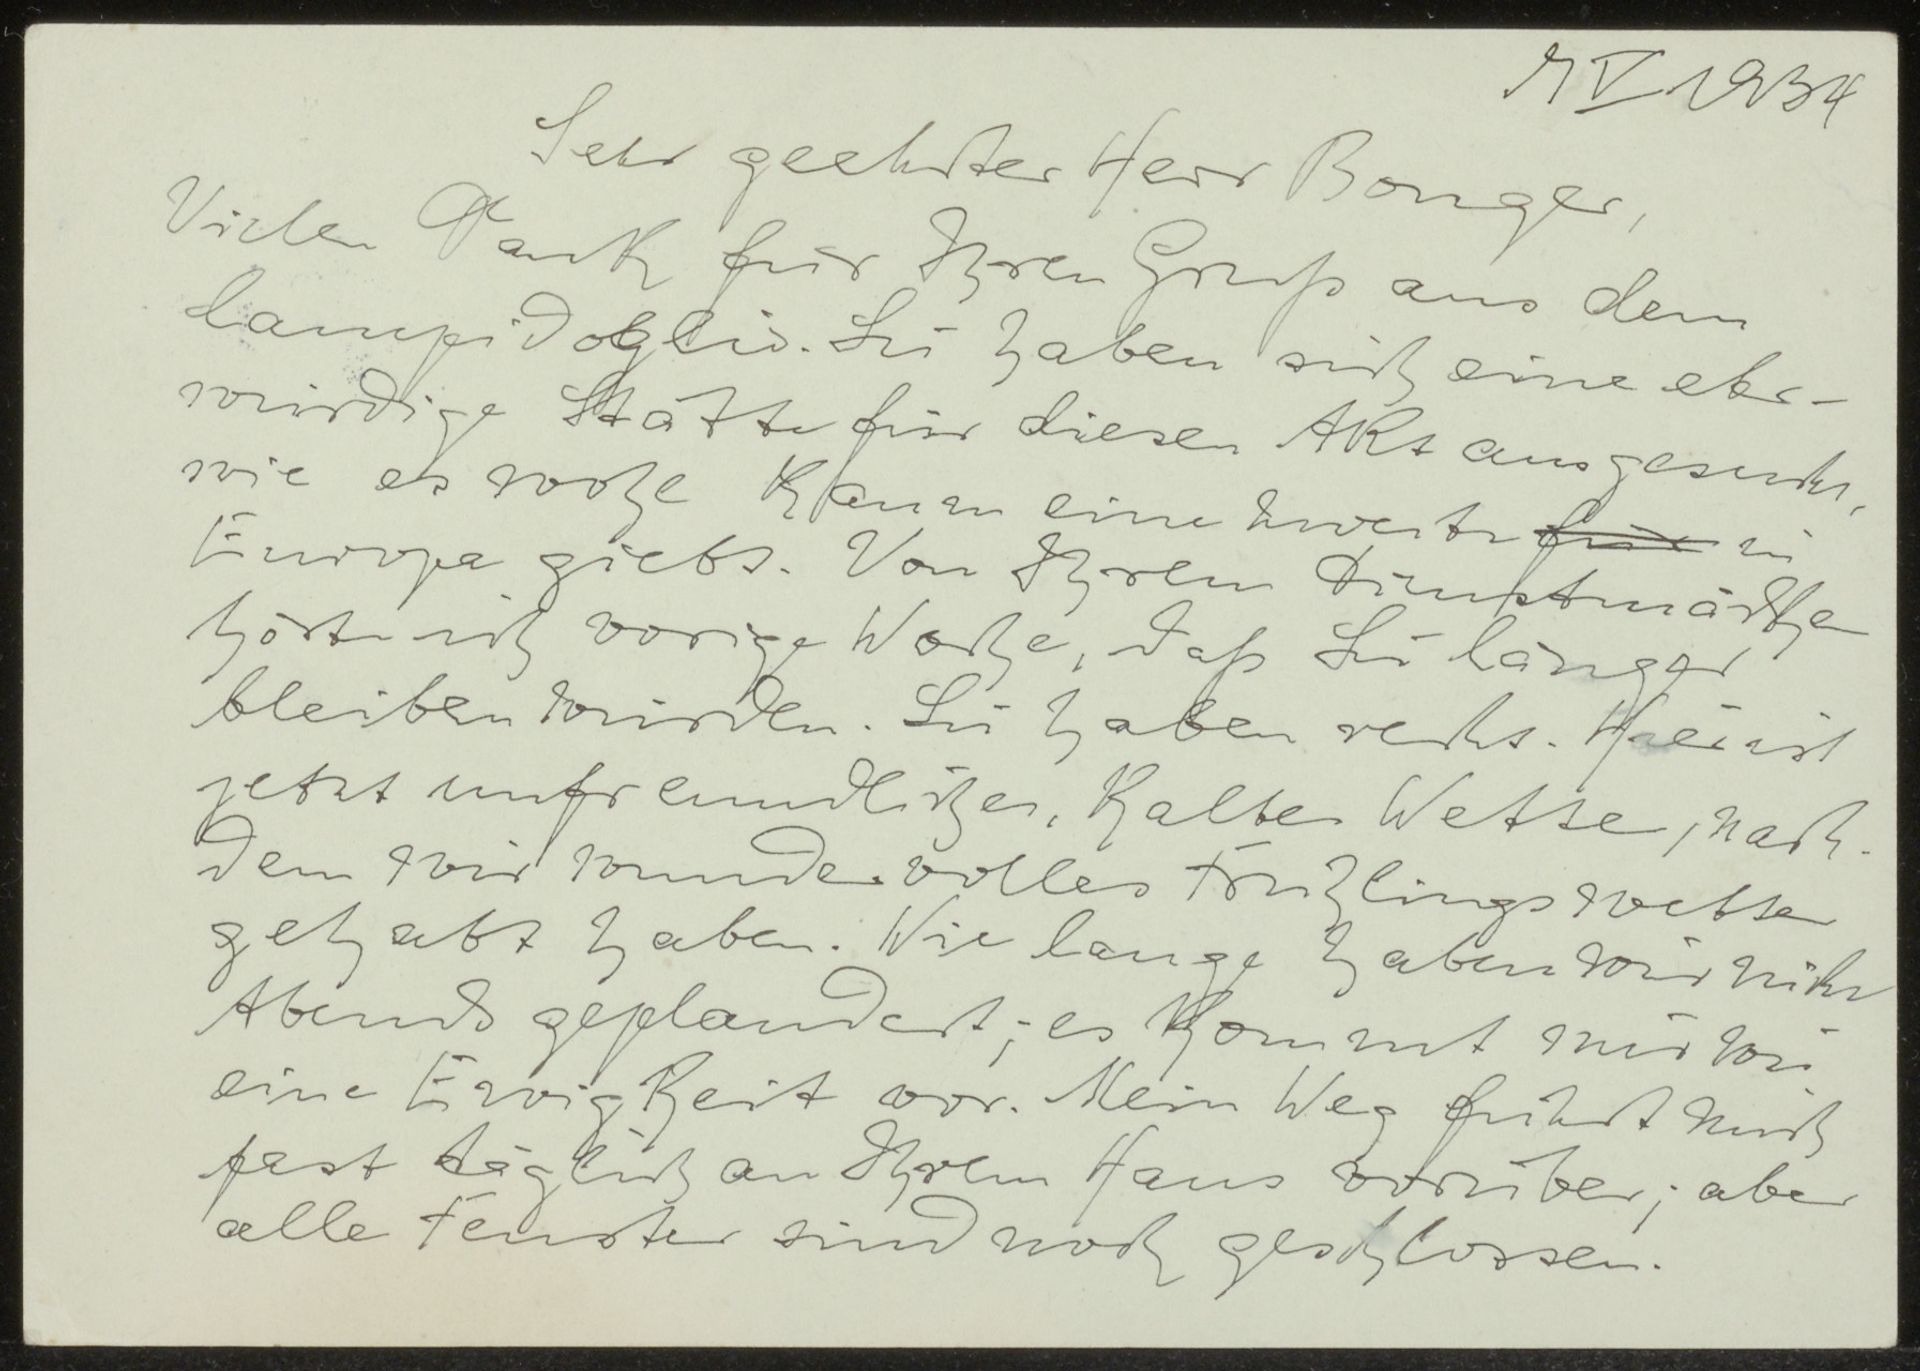 7 V 1934
Sehr geehrter Herr Bonger,
Vielen Dank für Ihren Gruß aus dem
Campidoglio. Sie haben sich eine ehr-
würdige Stätte für diesen Akt ausgesucht,
wie es wohl kaum eine zweite für in
Europa giebt. Von Ihrem Dienstmädchen
hörte ich vorige Woche, daß Sie länger
bleiben würden. Sie haben recht. Hier ist
jetzt unfreundliches, kaltes Wetter, nach-
dem wir wundervolles Frühlingswetter
gehabt haben. Wie lange haben wir nicht
Abends geplaudert; es kommt mir wie
eine Ewigkeit vor. Mein Weg führt mich
fast täglich an Ihrem Haus vorüber; aber
alle Fenster sind noch geschlossen.